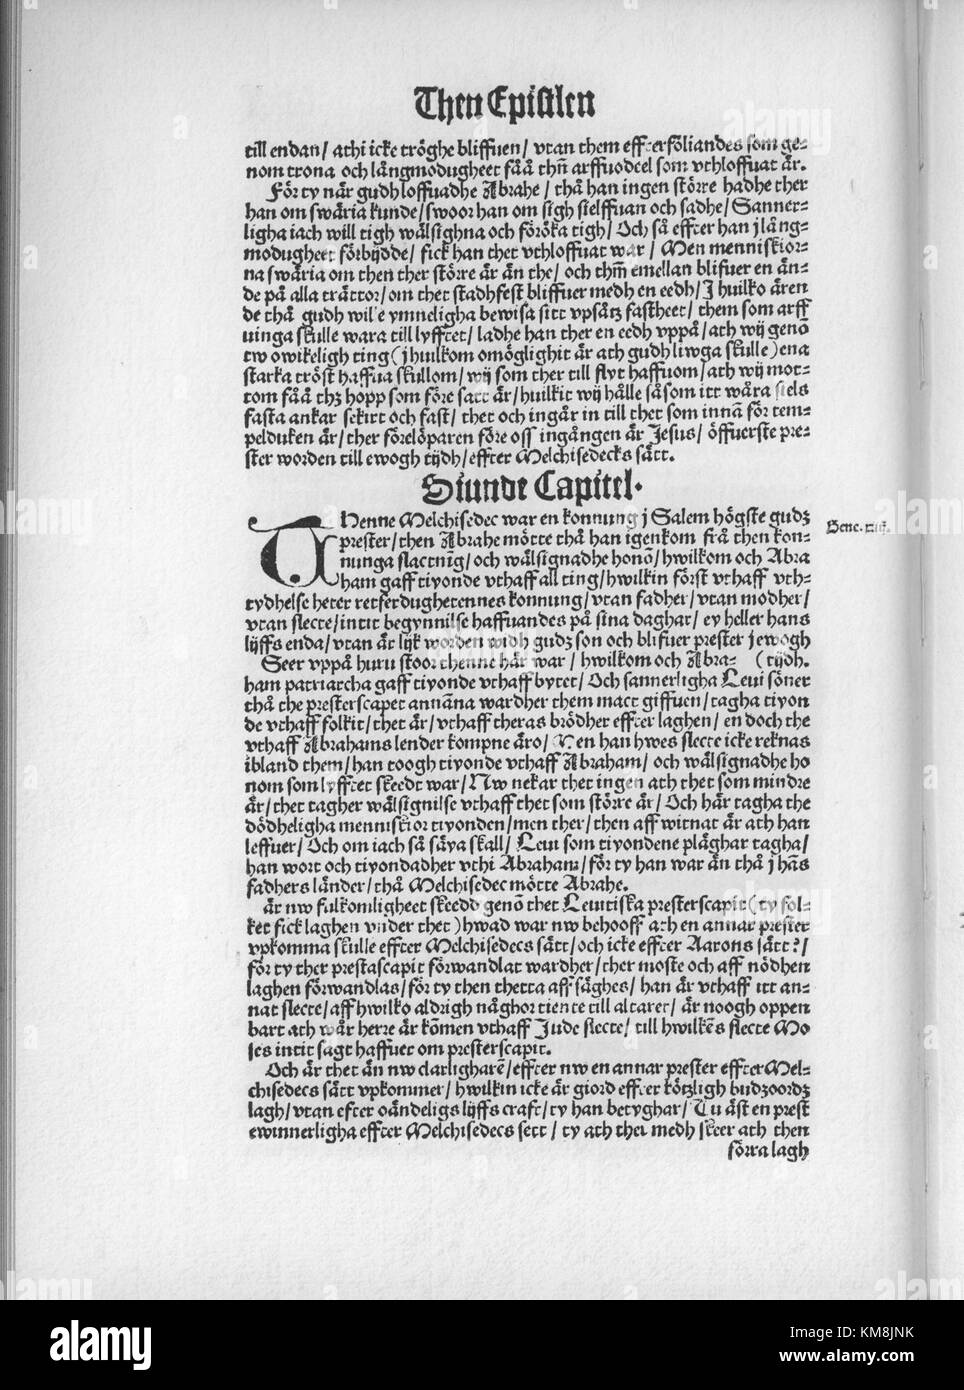 Then Epistlen
till endan/ athi icke tröghe bliffuen/ vtan them effterföliandes som ge=
nom trona och långmodugheet fåå thñ arffuodeel som vthloffuat är.
För ty när gudh loffuadhe Abrahe/ thå han ingen större hadhe ther
han om swäria kunde/ swoor han om sigh sielffuan och sadhe/ Sanner=
ligha iach will tigh wälsighna och föröka tigh/ Och så effter han j lång=
modugheet förbijdde/ fick han thet vthloffuat war/ Men menniskior=
na swäria om then ther större är än the/ och thm̃ emellan blifuer en än=
de på alla trättor/ om thet stadhfest bliffuer medh en eedh/ J huilko ären
de thå gudh wille ymneligha bewisa sitt vpsåtz fastheet/ them som arff
uinga skulle wara till lyfftet/ ladhe han ther en eedh vppå/ ath wij genõ
tw owikeligh ting (j huilkom omöglighit är ath gudh liwga skulle) ena
starka tröst haffua skullom/ wij som ther till flyt haffuom/ ath wij mot=
tom fåå thz hopp som före satt är/ huilkit wij hålle såsom itt wåra siels
fasta ankar sekirt och fast/ thet och ingår in till thet som innã för tem=
pelduken är/ ther förelöparen före oss ingången är Jesus/ öffuerste pre=
ster worden till ewogh tijdh/ effter Melchisedecks sätt.
Siunde Capitel.
THenne Melchisedec war en konnung j Salem högste gudz
prester/ then Abrahe mötte thå han igenkom frå then kon=
nunga slactnĩg/ och wälsignadhe honõ/ hwilkom och Abra
ham gaff tiyonde vthaff all ting/ hwilkin först vthaff vth=
tydhelse heter retferdughetennes konnung/ vtan fadher/ vtan modher/
vtan slecte/ intit begynnilse haffuandes på sina daghar/ ey heller hans
lijffs enda/ vtan är lijk worden widh gudz son och blifuer prester j ewogh
Seer vppå huru stoor thenne här war/ hwilkom och Abra= (tijdh.
ham patriarcha gaff tiyonde vthaff bytet/ Och sannerligha Leui söner
thå the presterscapet annãna wardher them mact giffuen/ tagha tiyon
de vthaff folkit/ thet är/ vthaff theras brödher effter laghen/ en doch the
vthaff Abrahams lender kompne äro/ Men han hwes slecte icke reknas
ibland them/ han toogh tiyonde vthaff Abraham/ och wälsignadhe ho
nom som lyfftet skeedt war/ Nw nekar thet ingen ath thet som mindre
är/ thet tagher wälsignilse vthaff thet som större är/ Och här tagha the
dödheligha menniskior tiyonden/ men ther/ then aff witnat är ath han
leffuer/ Och om iach så säya skall/ Leui som tiyondene pläghar tagha/
han wort och tiyondadher vthi Abraham/ för ty han war än thå j hãs
fadhers länder/ thå Melchisedec mötte Abrahe.
Är nw fulkomligheet skeedd genõ thet Leuitiska presterscapit (ty fol=
ket fick laghen vnder thet) hwad war nw behooff ath en annar prester
vpkomma skulle effter Melchisedecs sätt/ och icke effter Aarons sätt?/
för ty ther prestascapit förwandlat wardher/ ther moste och aff nödhen
laghen förwandlas/ för ty then thetta aff säghes/ han är vthaff itt an=
nat slecte/ aff hwilko aldrigh någhor tiente till altaret/ är noogh oppen
bart ath wår herre är kõmen vthaff Jude slecte/ till hwilkẽs slecte Mo
ses intit sagt haffuer om presterscapit.
Och är thet än nw clarligharẽ/ effter nw en annar prester effter Mel=
chisedecs sätt vpkommer/ hwilkin icke är giord effter kötzligh budzoordz
lagh/ vtan effter oändeligs lijffs craft/ ty han betyghar/ Tu äst en prest
ewinnerligha effter Melchisedecs sett/ ty ath ther medh skeer ath then
förra lagh
Gene. xiiij.
alamy
Image ID: KM8JNK
www.alamy.com